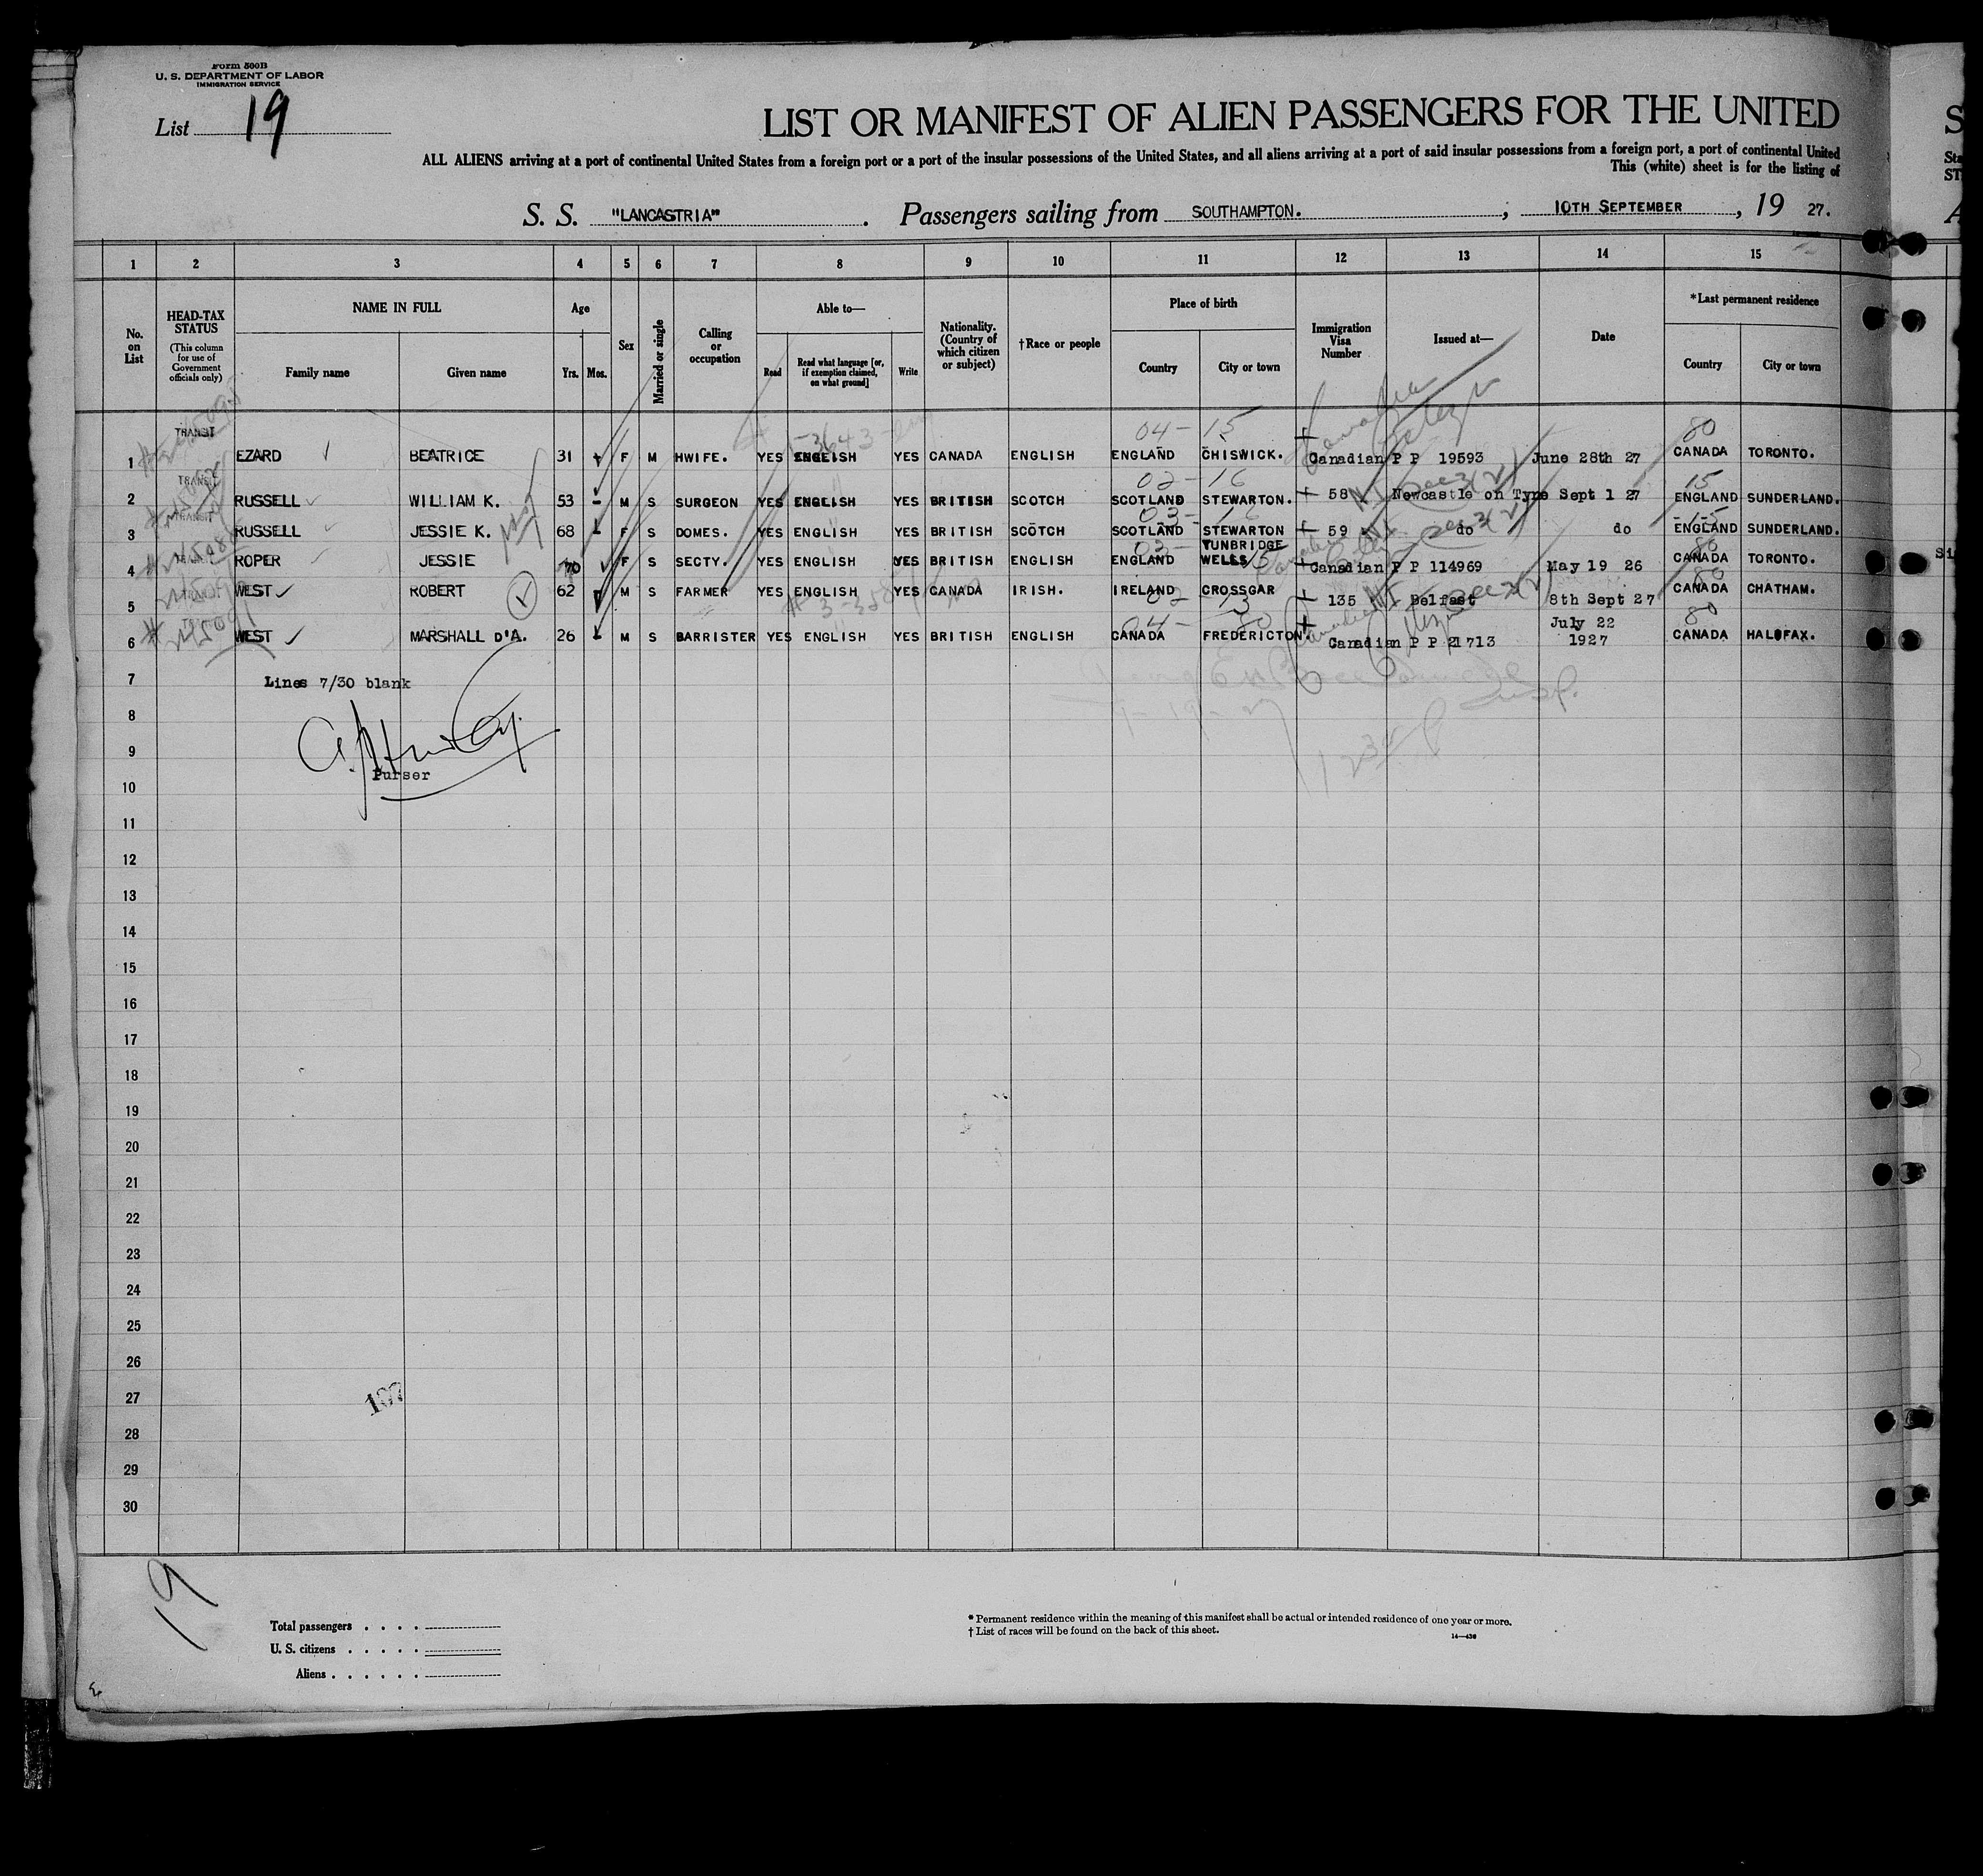 Form 500B
U. S. DEPARTMENT OF LABOR
IMMIGRATION SERVICE
List 19
LIST OR MANIFEST OF ALIEN PASSENGERS FOR THE UNITED
ALL ALIENS arriving at a port of continental United States from a foreign port or a port of the insular possessions of the United States, and all aliens arriving at a port of said insular possessions from a foreign port, a port of continental United
This (white) sheet is for the listing of
S. S. "LANCASTRIA". Passengers sailing from SOUTHAMPTON., 10TH SEPTEMBER, 19 27.
1 2 3 4 5 6 7 8 9 10 11 12 13 14 15
No. on List
HEAD-TAX STATUS
(This column for use of Government officials only)
NAME IN FULL
Family name Given name
Age
Yrs. Mos.
Sex
Married or single
Calling or occupation
Able to—
Read Read what language [or, if exemption claimed, on what ground] Write
Nationality. (Country of which citizen or subject)
†Race or people
Place of birth
Country City or town
Immigration Visa Number
Issued at—
Date
*Last permanent residence
Country City or town
04-15 80
1 TRANSIT EZARD BEATRICE 31 F M HWIFE. YES ENGLISH YES CANADA ENGLISH ENGLAND CHISWICK. Canadian P P 19593 June 28th 27 CANADA TORONTO.
02-16 15
2 TRANSIT RUSSELL WILLIAM K. 53 M S SURGEON YES ENGLISH YES BRITISH SCOTCH SCOTLAND STEWARTON. 58 Newcastle on Tyne Sept 1 27 ENGLAND SUNDERLAND.
3 TRANSIT RUSSELL JESSIE K. 68 F S DOMES. YES ENGLISH YES BRITISH SCOTCH SCOTLAND STEWARTON 59 do do ENGLAND SUNDERLAND.
4 TRANSIT ROPER JESSIE 70 F S SECTY. YES ENGLISH YES BRITISH ENGLISH ENGLAND TUNBRIDGE WELLS Canadian P P 114969 May 19 26 CANADA TORONTO.
5 TRANSIT WEST ROBERT 62 M S FARMER YES ENGLISH YES CANADA IRISH. IRELAND CROSSGAR 135 Belfast 8th Sept 27 CANADA CHATHAM.
6 WEST MARSHALL D'A. 26 M S BARRISTER YES ENGLISH YES BRITISH ENGLISH CANADA FREDERICTON. Canadian P P 21713 July 22 1927 CANADA HALOFAX.
7 Lines 7/30 blank
8
9
Purser
10
11
12
13
14
15
16
17
18
19
20
21
22
23
24
25
26
27
28
29
30
19
Total passengers . . . .
U. S. citizens . . . . .
Aliens . . . . . .
* Permanent residence within the meaning of this manifest shall be actual or intended residence of one year or more.
† List of races will be found on the back of this sheet.